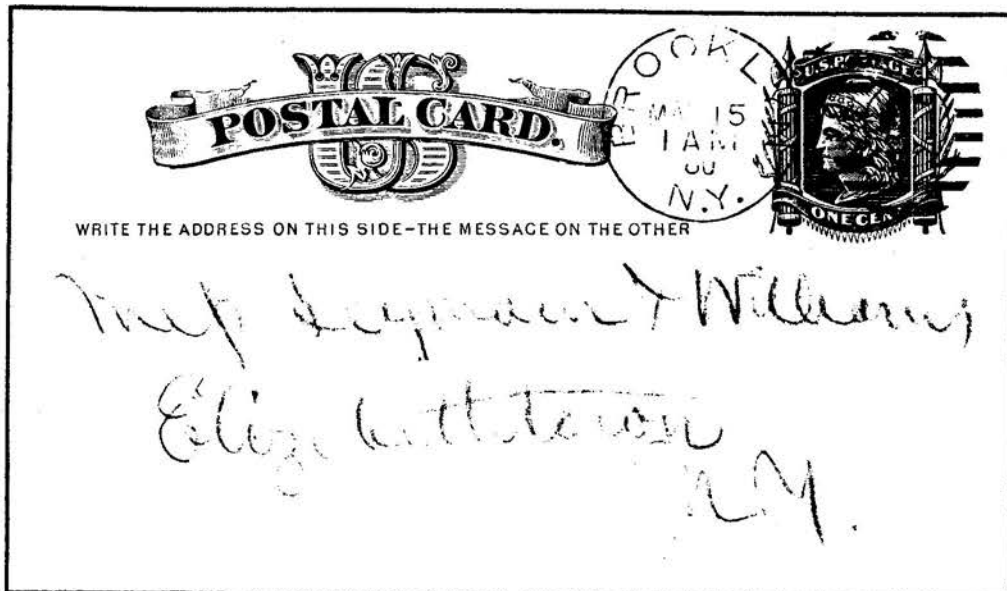 US
POSTAL CARD.
BROOKL
15
1 AM
N.Y.
U.S. POSTAGE
ONE CENT
WRITE THE ADDRESS ON THIS SIDE–THE MESSAGE ON THE OTHER
Williams
Elizabethtown
N.Y.